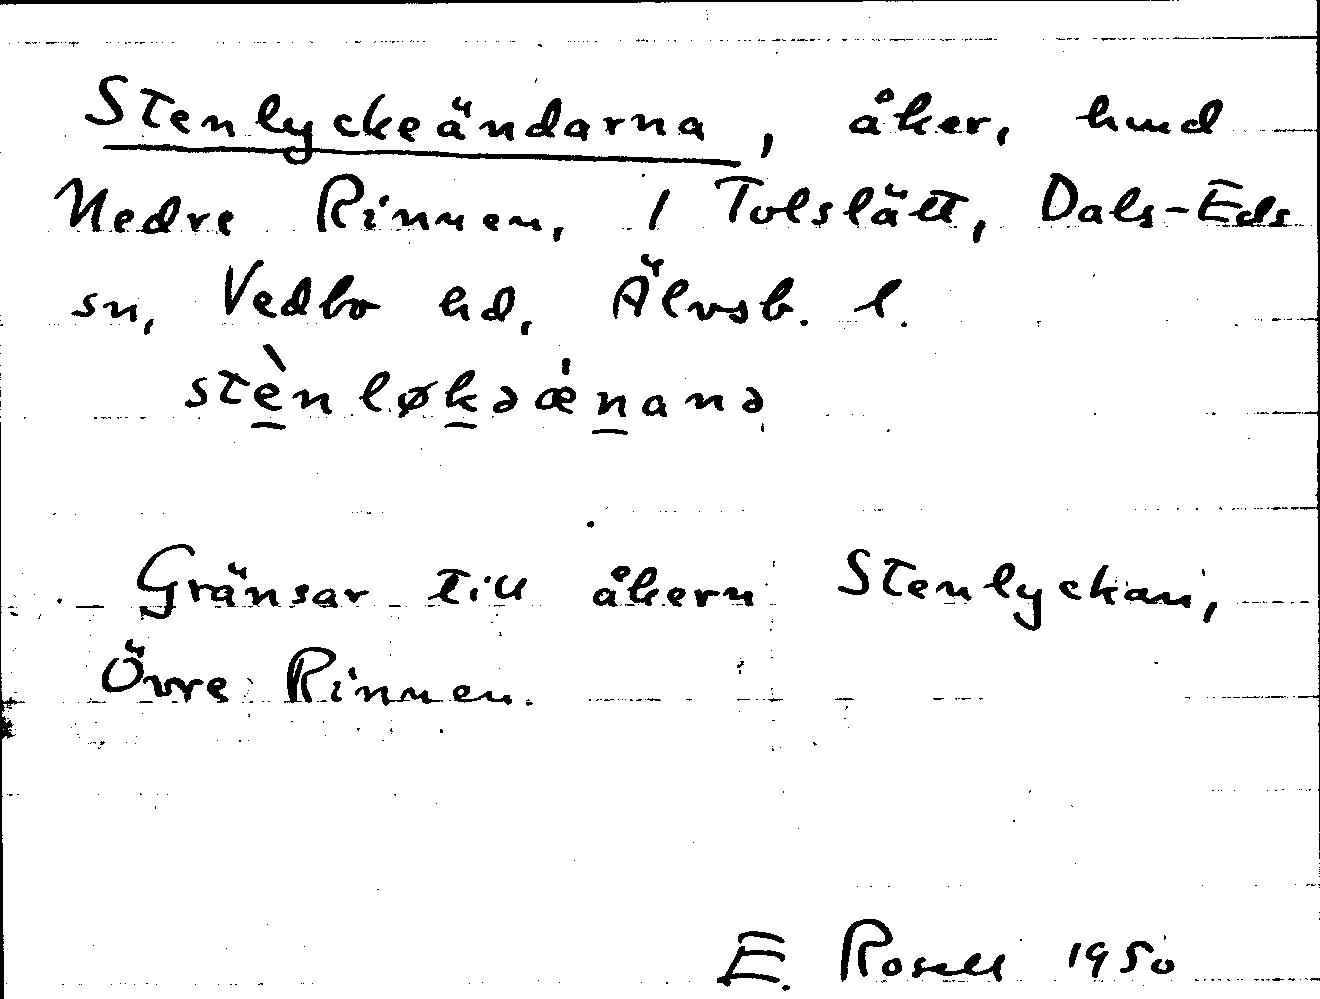 Stenlyckeändarna, åker, hmd
Nedre Rinnen, 1 Tolslätt, Dals-Eds
sn, Vedbo hd, Älvsb. l.
stèn løkəǽnanə
Gränsar till åkern Stenlyckan,
Övre Rinnen.
E. Rosell 1950